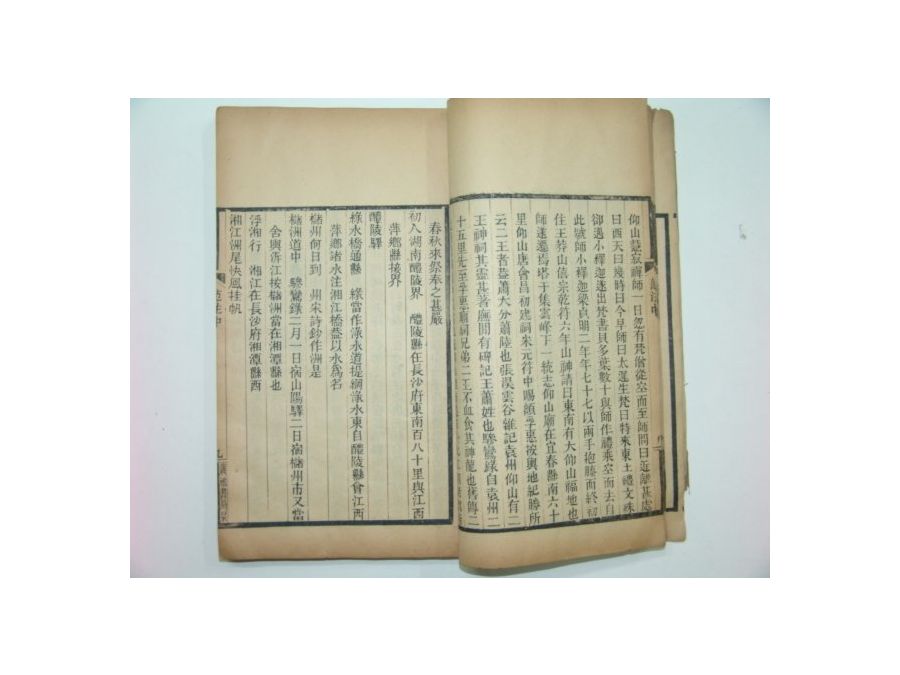 仰山慧寂禪師一日忽有梵僧從空而至師問曰近離甚處
曰西天曰幾時曰今早師曰太遲生梵曰特來東土禮文殊
卻遇小釋迦遂出梵書貝多葉數十與師作禮乘空而去自
此號師小釋迦梁貞明二年年七十七以兩手抱膝而終初
住王莽山信宗乾符六年山神請曰東南有大仰山福地也
師遂遷焉塔于集雲峰下一統志仰山廟在宜春縣南六十
里仰山唐會昌初建祠宋元符中賜額孚惠按輿地紀勝所
云二王者葢蕭大分蕭陸也張淏雲谷雜記袁州仰山有二
王神祠其靈甚著廡間有碑記王蕭姓也驂鸞錄自袁州二
十五里先至孚惠廟祠兄弟二王不血食其神龍也舊傳二
春秋來祭奉之甚嚴
初入湖南醴陵界 醴陵縣在長沙府東南百八十里與江西
萍鄉縣接界
醴陵驛
綠水橋通縣 綠當作淥水道提綱淥水東自醴陵縣會江西
萍鄉諸水注湘江橋葢以水爲名
櫧州何日到 州宋詩鈔作洲是
櫧洲道中 驂鸞錄二月一日宿山陽驛二日宿櫧州市又當
舍輿泝江按櫧洲當在湘潭縣也
浮湘行 湘江在長沙府湘潭縣西
湘江洲尾快風挂帆
范注中
九